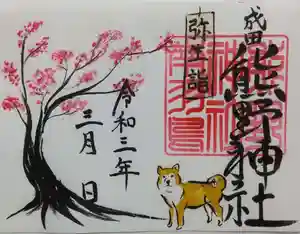 成田
熊野神社
弥生詣
令和三年
三月 日